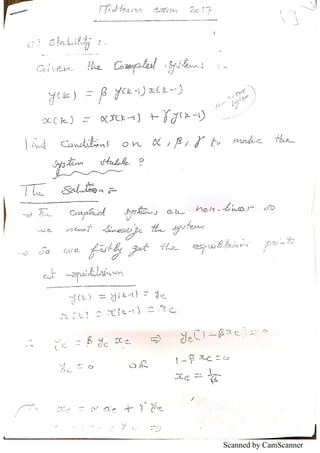 Midterm exam 2017
Stability :-
Given the Coupled systems :-
y(k) = β y(k-1) x(k-1)
x(k) = αx(k-1) + γ y(k-1)
Find Conditions on α, β, γ to make the
system stable ?
The Solution :-
→ The coupled systems are non-linear so
we must linearize the system
→ So we firstly get the equilibrium points
at equilibrium
y(k) = y(k-1) = ye
x(k) = x(k-1) = xe
∴ ye = β ye xe ⇒ ye(1-βxe) = 0
ye = 0 OR 1-βxe = 0
xe = 1/β
xe = α xe + γ ye
Scanned by CamScanner